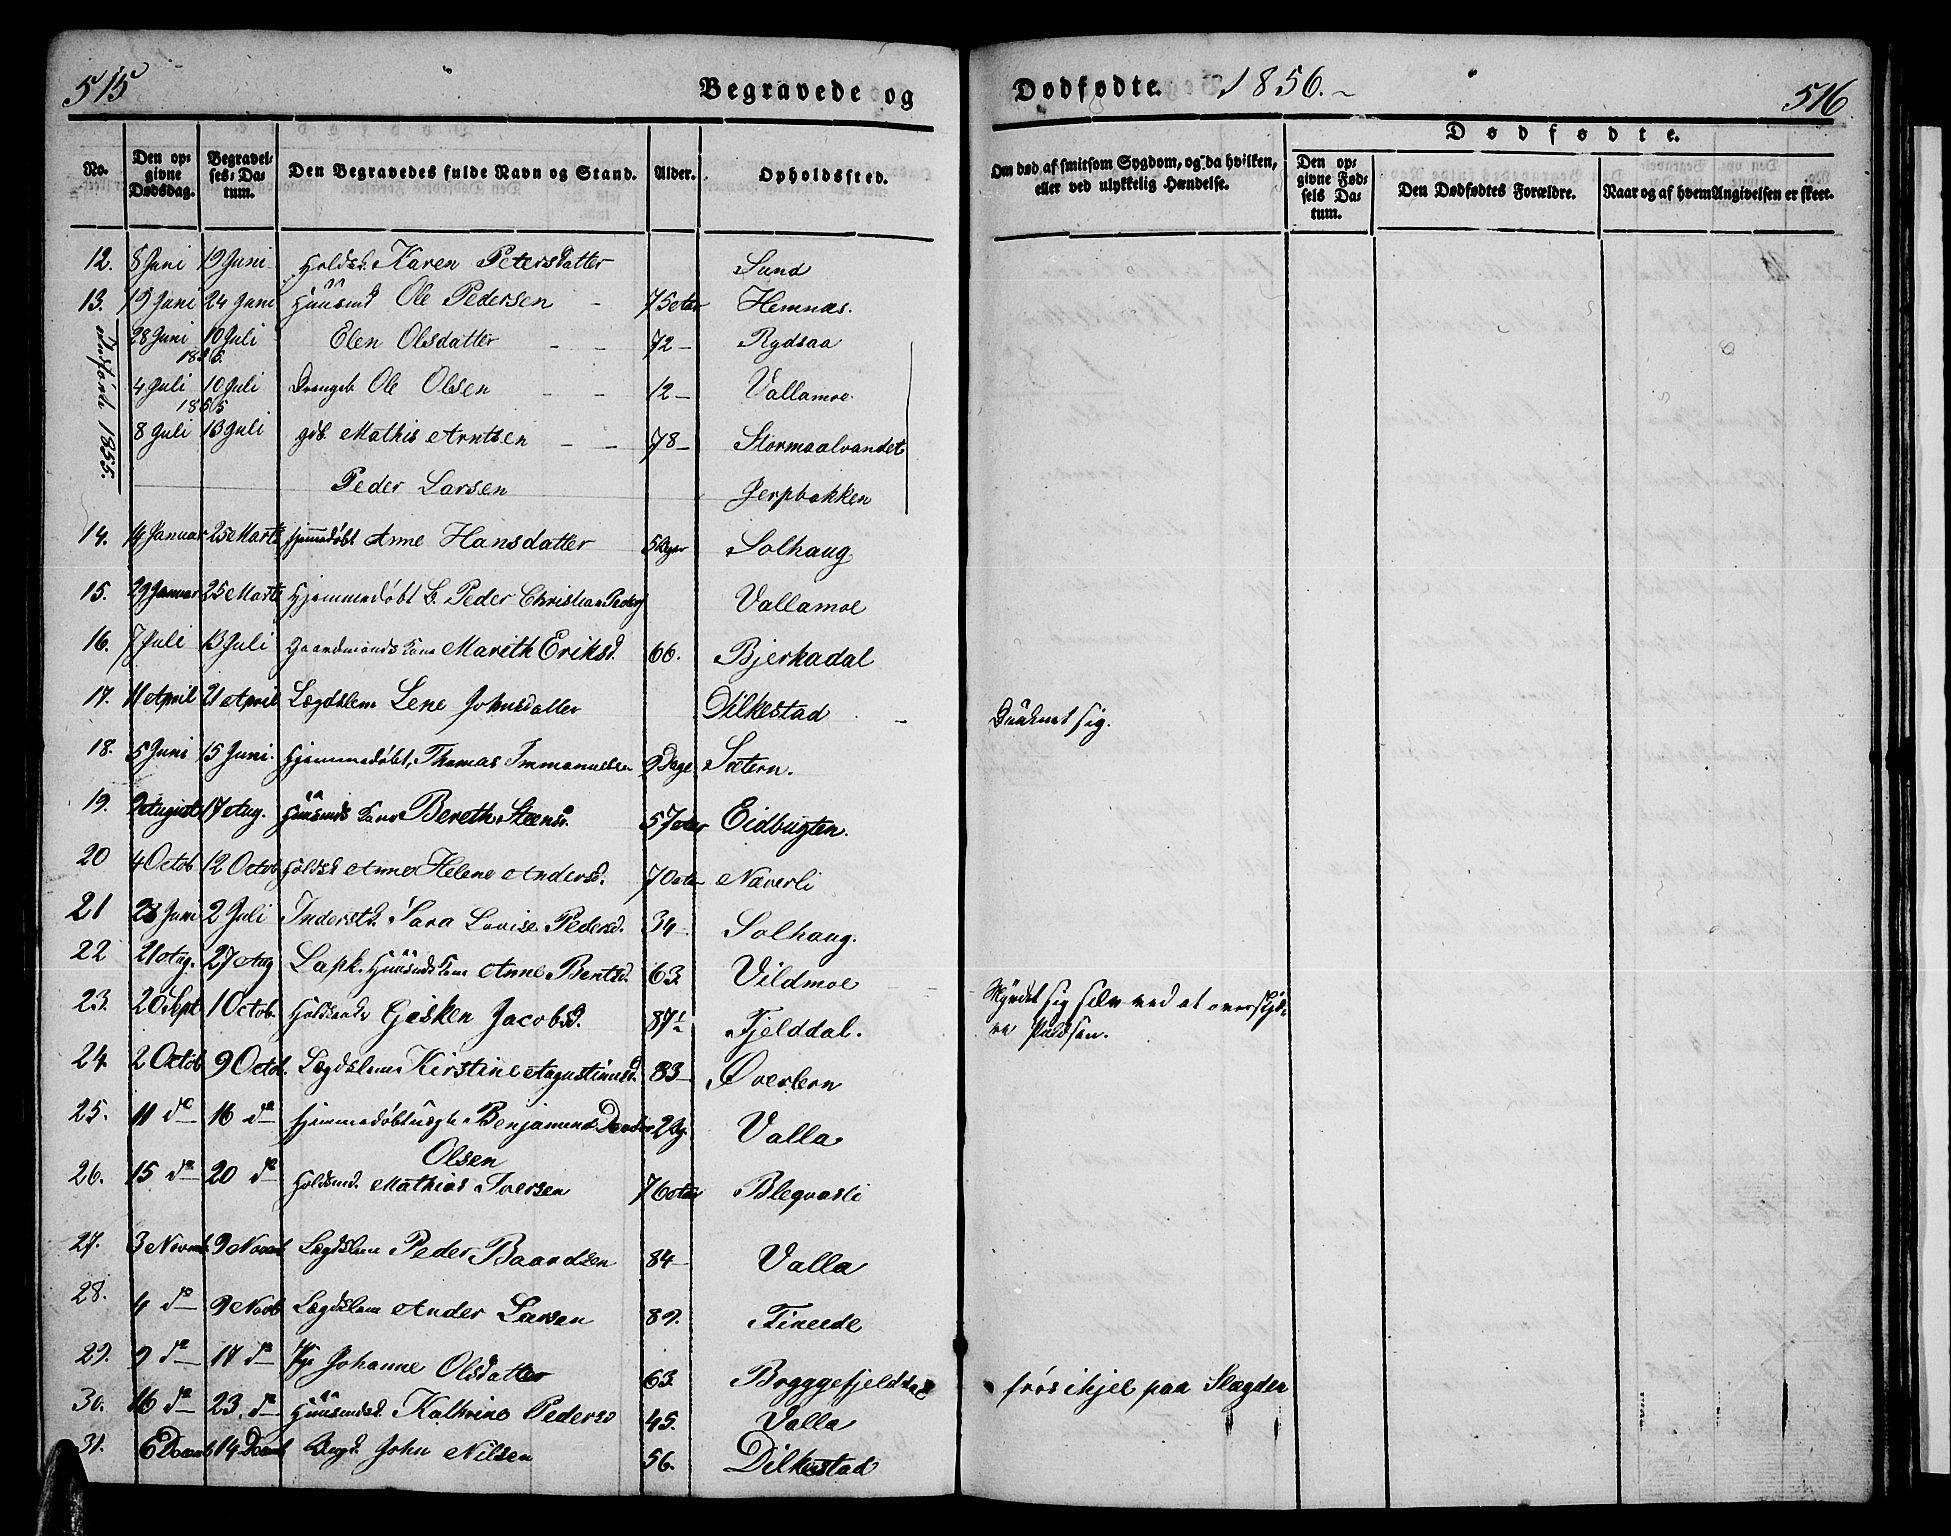 515
Begravede og
Dødfødte. 1856.
516.
No.
Den opgivne Dødsdag.
Begravelses-Datum.
Den Begravedes fulde Navn og Stand.
Alder.
Opholdssted.
Om død af smitsom Sygdom, og da hvilken, eller ved ulykkelig Hændelse.
Dødfødte.
Den opgivne Fødsels Datum.
Den Dødfødtes Forældre.
Naar og af hvem Angivelsen er skeet.
12. 8 Juni 19 Juni Karen Petersdatter Sund
13. 19 Juni 24 Juni Huusmd Ole Pedersen 75 Hemnæs.
28 Juni 10 Juli Elen Olsdatter 72 Rydsaa
4 Juli 10 Juli Ole Olsen 12 Vallamoe
8 Juli 13 Juli Mathis Arntsen 78 Stormaalvandet
Peder Larsen Jerpbakken
1855.
14. 14 Januar 25 Marts hjemmedøbt Anne Hansdatter 5 Solhaug
15. 29 Januar 25 Marts Hjemmedøbt B. Peder Christian Vallamoe
16. 7 Juli 13 Juli Gaardmands Kone Mareth Eriksd. 66. Bjerkadal
17. 11 April 21 April Lægdslem Lene Johnsdatter Dilkestad Druknet sig.
18. 5 Juni 15 Juni. Hjemmedøbt, Thomas Immanuelsen 9 Dage Sætern.
19. 9 August 17 Aug. Huusmds Kone Bereth Steensd. 57 Eidbugten.
20 4 Octob 12 Octob Anne Helene Andersd. 70 Næverli
21 28 Juni 2 Juli Inderstd. Sara Lovise Pedersd. 34 Solhaug.
22 21 Aug. 27 Aug Lapk. Anne Bentsd. 63. Vildmoe
23. 20 Sept 1 Octob. Gjesken Jacobsd. 87½ Fjelddal.
24 2 Octob 9 Octob. Lægdslem Kirstine Agustinusd. 83 Øverlern
25. 11 do 16 do hjemmedøbt Benjamin 2 Valla
Olsen
26. 15 do 20 do Mathias Iversen 76 Blegvasli
27. 3 Novemb. 9 Novemb Lægdslem Peder Baardsen 84 Valla
28. 4 do 9 Novb Lægdslem Ander Larsen 89. Fineide
29. 9 do 17 do Pige Johanne Olsdatter 63. Bryggefjelddal frøs ihjel paa Slægden
30. 16 do 23. do Kathrine Pedersd 45. Valla
31. 6 Decemb 14 Decemb John Nilsen 56. Dilkestad